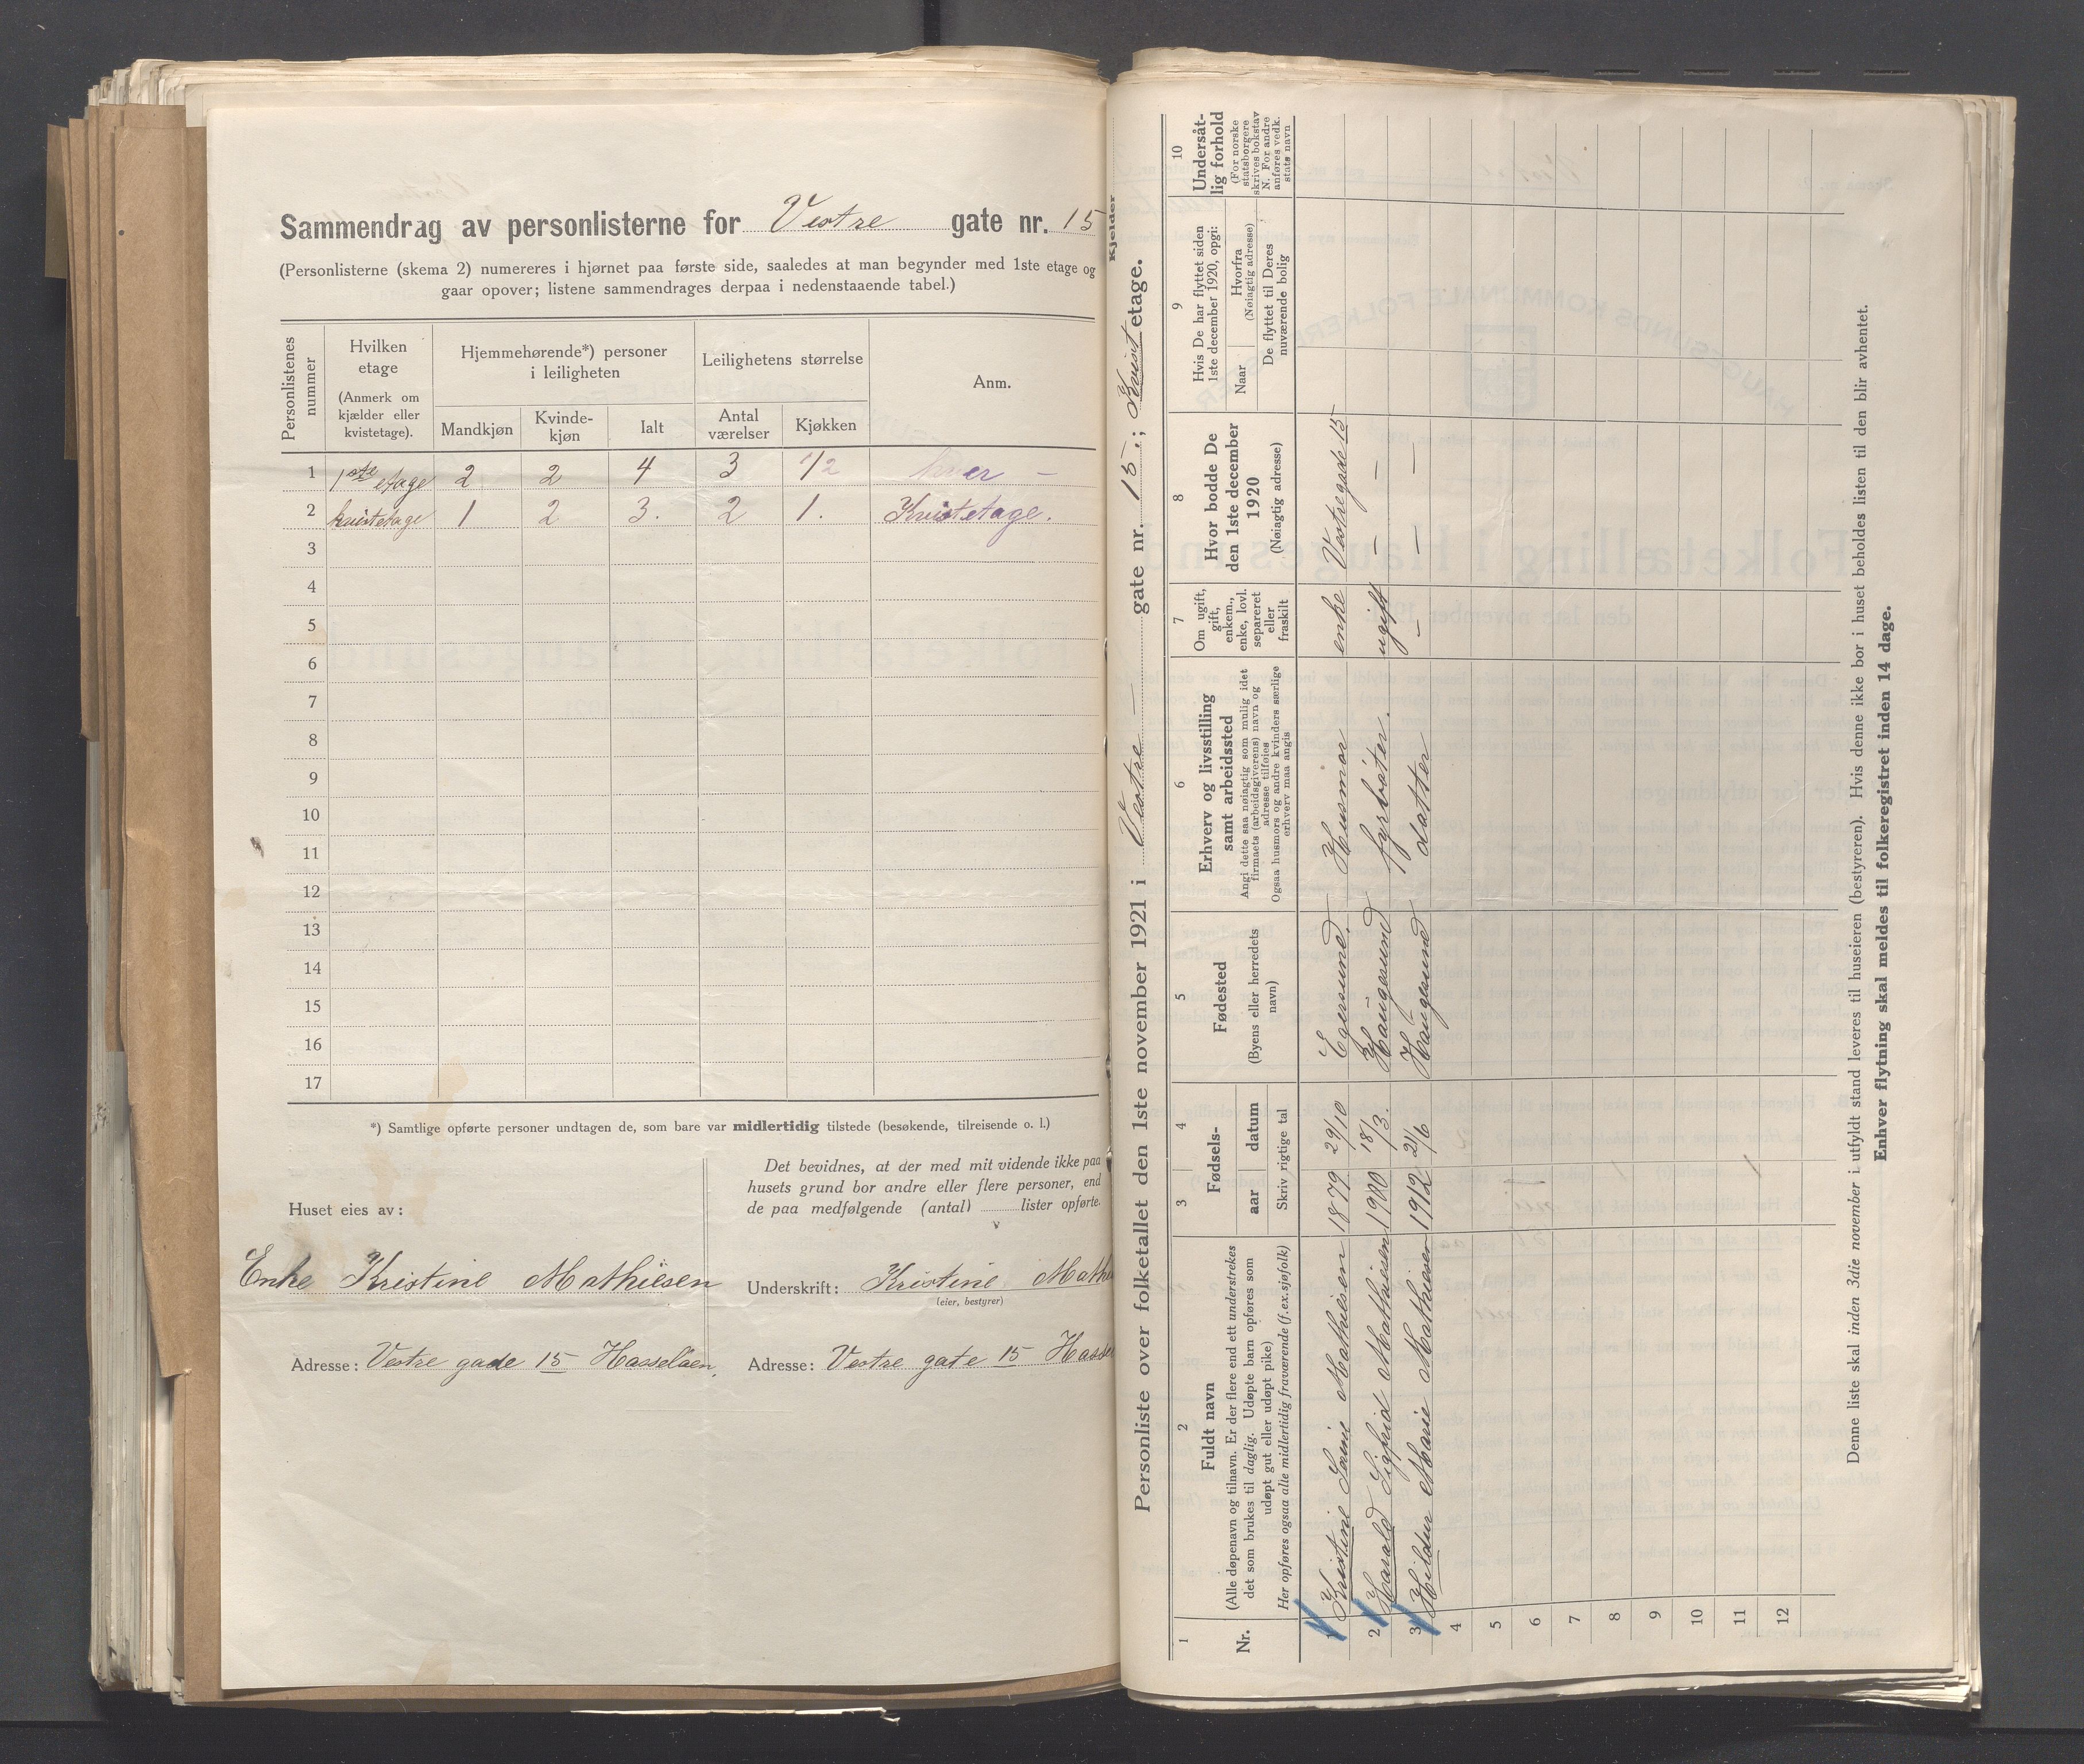 Sammendrag av personlisterne for Vestre gate nr. 15
(Personlisterne (skema 2) numereres i hjørnet paa første side, saaledes at man begynder med 1ste etage og
gaar opover; listene sammendrages derpaa i nedenstaaende tabel.)
Personlistenes nummer
Hvilken etage
(Anmerk om kjælder eller kvistetage).
Hjemmehørende*) personer i leiligheten
Mandkjøn
Kvindekjøn
Ialt
Leilighetens størrelse
Antal værelser
Kjøkken
Anm.
1 1ste etage 2 2 4 3 1/2
2 kvistetage 1 2 3. 2 1. Kvistetage.
3
4
5
6
7
8
9
10
11
12
13
14
15
16
17
*) Samtlige opførte personer undtagen de, som bare var midlertidig tilstede (besøkende, tilreisende o. l.)
Huset eies av:
Enke Kristine Mathiesen
Adresse: Vestre gade 15 Hasseløen.
Det bevidnes, at der med mit vidende ikke paa
husets grund bor andre eller flere personer, end
de paa medfølgende (antal) lister opførte.
Underskrift: Kristine Math
(eier, bestyrer)
Adresse: Vestre gate 15 Hasse
Kjelder
Personliste over folketallet den 1ste november 1921 i Vestre gate nr. 15.; Kvist etage.
1
Nr.
2
Fuldt navn
(Alle døpenavn og tilnavn. Er der flere end ett understrekes
det som brukes til daglig. Udøpte barn opføres som
udøpt gut eller udøpt pike)
Her opføres ogsaa alle midlertidig fraværende (f. ex. sjøfolk)
3 4
Fødsels-
aar datum
Skriv rigtige tal
5
Fødested
(Byens eller herredets
navn)
6
Erhverv og livsstilling
samt arbeidssted
Angi dette saa nøiagtig som mulig idet
firmaets (arbeidsgiverens) navn og
adresse tilføies
Ogsaa husmors og andre kvinders særlige
erhverv maa angis
7
Om ugift,
gift,
enkem.,
enke, lovl.
separeret
eller
fraskilt
8
Hvor bodde De
den 1ste december
1920
(Nøiagtig adresse)
9
Hvis De har flyttet siden
1ste december 1920, opgi:
Naar
Hvorfra
(Nøiagtig adresse)
De flyttet til Deres
nuværende bolig
10
Undersåt-
lig forhold
(For norske
statsborgere
skrives bokstav
N. For andre
anføres vedk.
stats navn
1 Kristine Mathiesen 1879 29/10 Egersund. Husmor enke Vestregade 15
2 Harald Sigfrid Mathiesen 1900 18/3. Haugesund fyrbøter. ugift — —
3 Hildur Marie Mathiesen 1912 21/6 Haugesund datter — — —
4
5
6
7
8
9
10
11
12
Denne liste skal inden 3die november i utfyldt stand leveres til huseieren (bestyreren). Hvis denne ikke bor i huset beholdes listen til den blir avhentet.
Enhver flytning skal meldes til folkeregistret inden 14 dage.